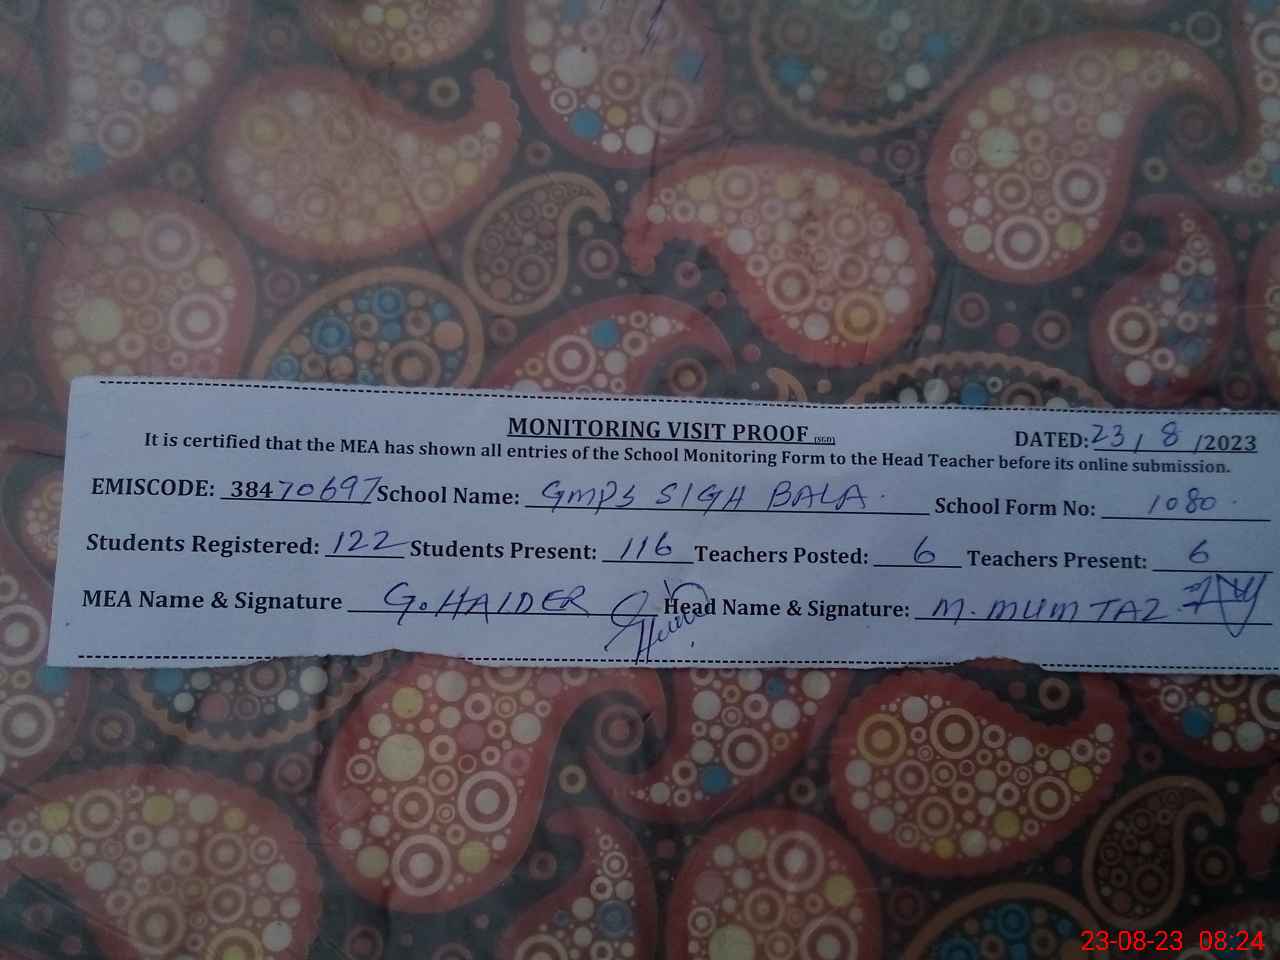 MONITORING VISIT PROOF (SGD)
DATED: 23 / 8 /2023
It is certified that the MEA has shown all entries of the School Monitoring Form to the Head Teacher before its online submission.
EMISCODE: 38470697 School Name: GMPS SIGH BALA. School Form No: 1080.
Students Registered: 122 Students Present: 116 Teachers Posted: 6 Teachers Present: 6
MEA Name & Signature G. HAIDER Head Name & Signature: M. MUMTAZ
23-08-23 08:24